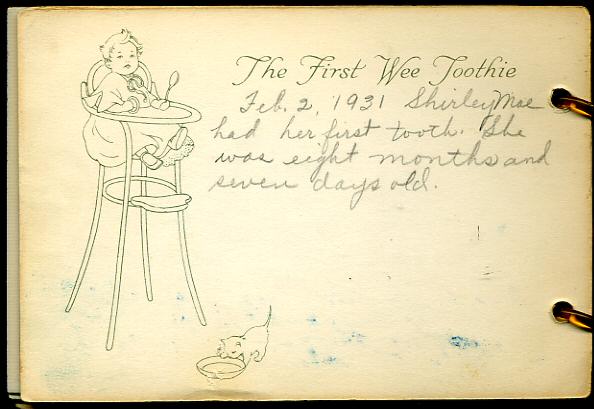 The First Wee Toothie
Feb. 2, 1931 Shirley Mae
had her first tooth. She
was eight months and
seven days old.